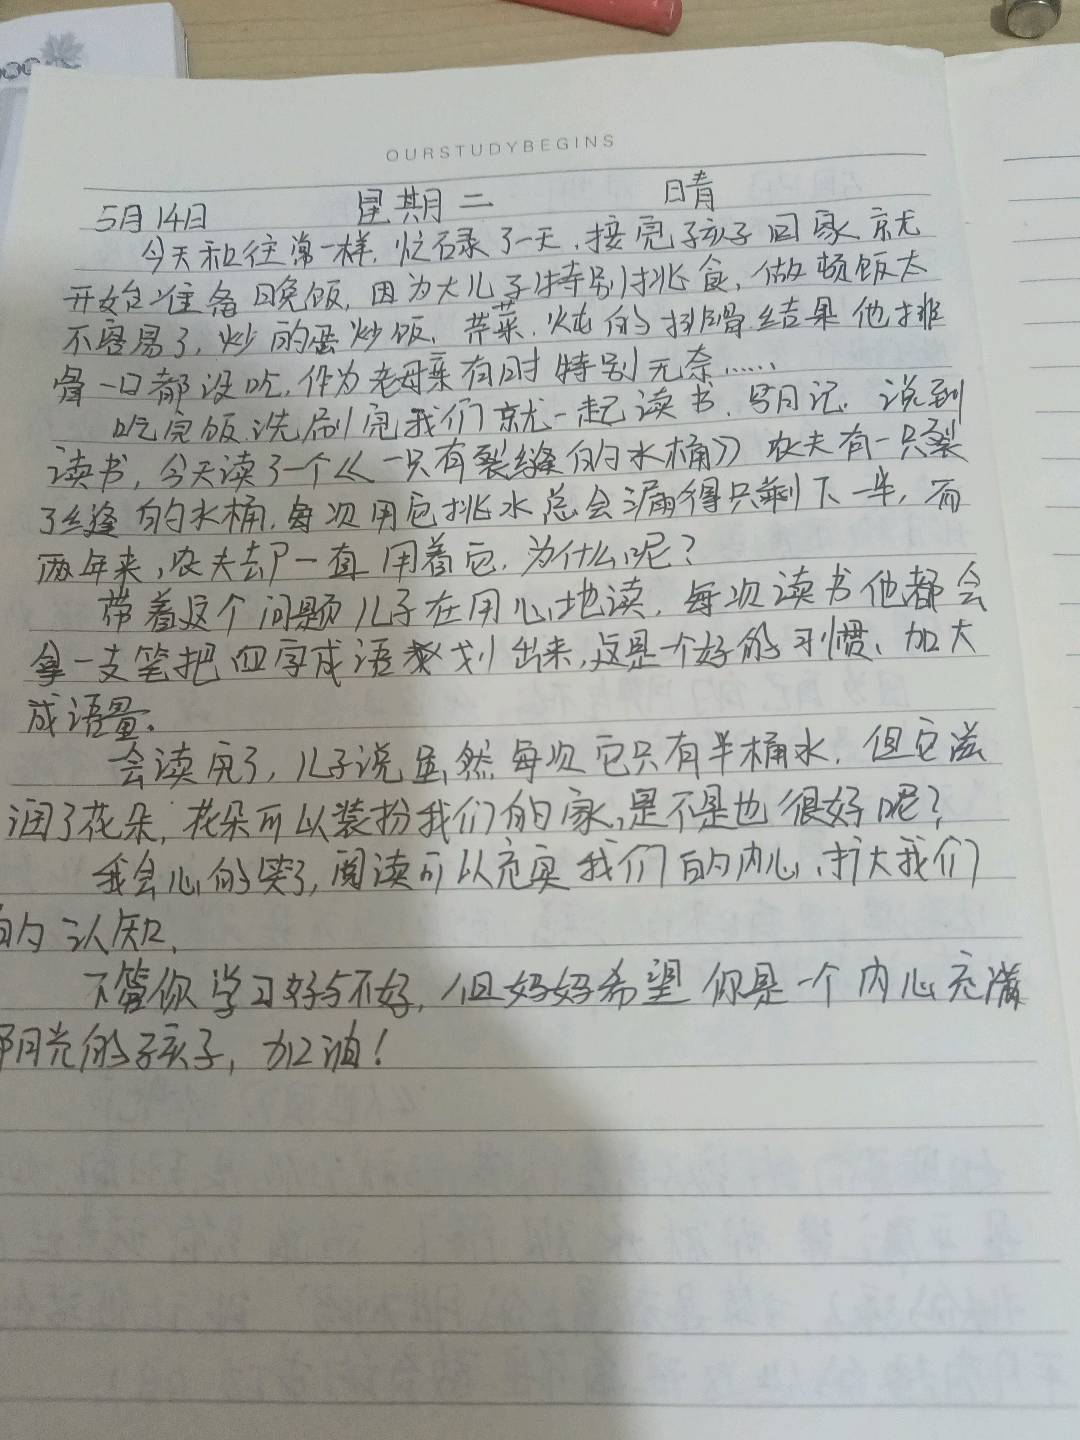 OURSTUDYBEGINS
5月14日 星期二 晴
今天和往常一样,忙碌了一天,接完孩子回家就
开始准备晚饭,因为大儿子特别挑食,做顿饭太
不容易了,炒的蛋炒饭、芹菜、炖的排骨.结果他排
骨一口都没吃,作为老母亲有时特别无奈......
吃完饭.洗刷完我们就一起读书、写日记.说到
读书,今天读了一个《一只有裂缝的水桶》农夫有一只裂
了缝的水桶,每次用它挑水总会漏得只剩下一半,而
两年来,农夫却一直用着它.为什么呢?
带着这个问题儿子在用心地读,每次读书他都会
拿一支笔把四字成语划出来,这是个好的习惯、加大
成语量.
会读完了,儿子说虽然每次它只有半桶水,但它滋
润了花朵,花朵可以装扮我们的家,是不是也很好呢?
我会心的笑了,阅读可以充实我们的内心、扩大我们
的认知,
不管你学习好与不好,但妈妈希望你是一个内心充满
阳光的孩子,加油!